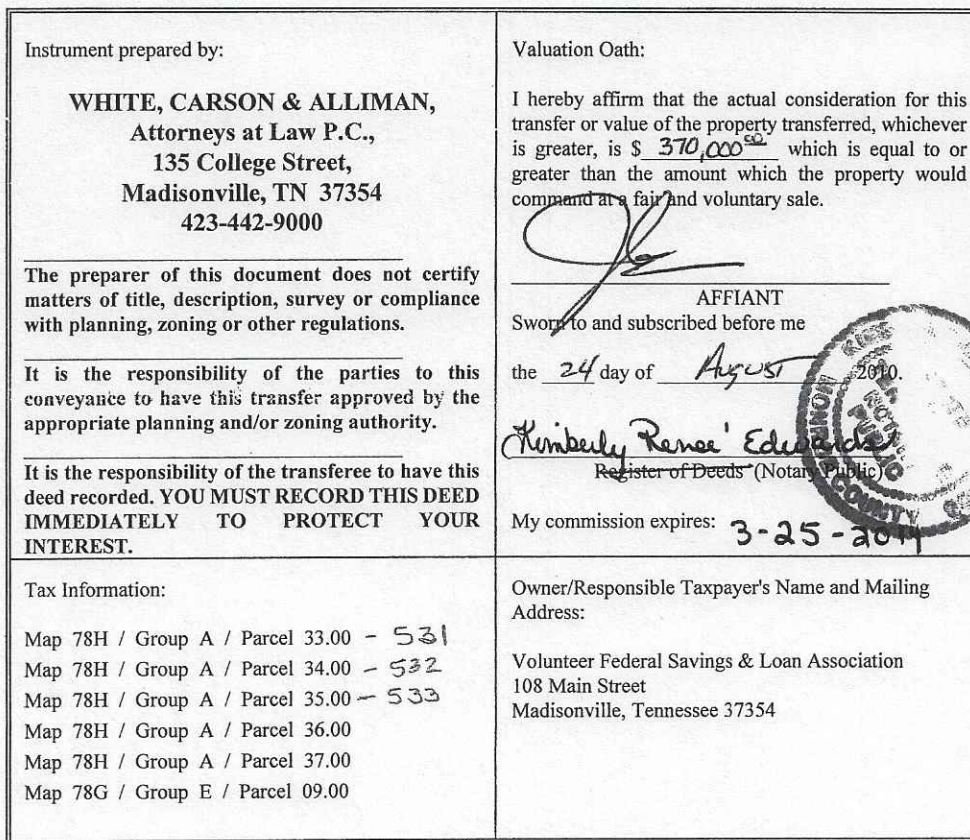 Instrument prepared by:
WHITE, CARSON & ALLIMAN,
Attorneys at Law P.C.,
135 College Street,
Madisonville, TN 37354
423-442-9000
The preparer of this document does not certify
matters of title, description, survey or compliance
with planning, zoning or other regulations.
It is the responsibility of the parties to this
conveyance to have this transfer approved by the
appropriate planning and/or zoning authority.
It is the responsibility of the transferee to have this
deed recorded. YOU MUST RECORD THIS DEED
IMMEDIATELY TO PROTECT YOUR
INTEREST.
Valuation Oath:
I hereby affirm that the actual consideration for this
transfer or value of the property transferred, whichever
is greater, is $ 370,000 00 which is equal to or
greater than the amount which the property would
command at a fair and voluntary sale.
AFFIANT
Sworn to and subscribed before me
the 24 day of August 2010.
Kimberly Renee' Edwards
Register of Deeds (Notary Public)
COUNTY
My commission expires: 3-25-2014
Tax Information:
Map 78H / Group A / Parcel 33.00 - 531
Map 78H / Group A / Parcel 34.00 - 532
Map 78H / Group A / Parcel 35.00 - 533
Map 78H / Group A / Parcel 36.00
Map 78H / Group A / Parcel 37.00
Map 78G / Group E / Parcel 09.00
Owner/Responsible Taxpayer's Name and Mailing
Address:
Volunteer Federal Savings & Loan Association
108 Main Street
Madisonville, Tennessee 37354